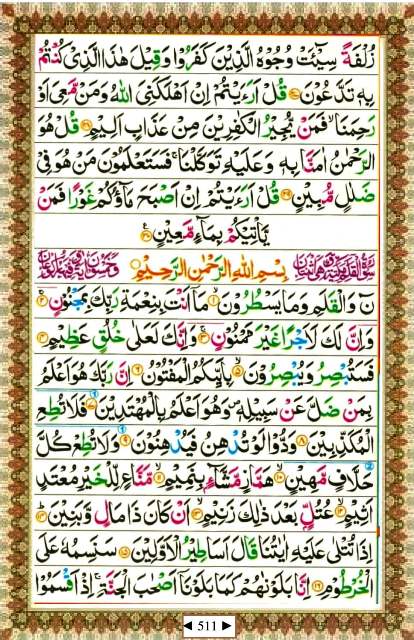 زُلْفَةً سِيْٓـَٔتْ وُجُوْهُ الَّذِيْنَ كَفَرُوْا وَقِيْلَ هٰذَا الَّذِيْ كُنْتُمْ
بِهٖ تَدَّعُوْنَ ۲۷ قُلْ اَرَءَيْتُمْ اِنْ اَهْلَكَنِيَ اللّٰهُ وَمَنْ مَّعِيَ اَوْ
رَحِمَنَا ۙ فَمَنْ يُّجِيْرُ الْكٰفِرِيْنَ مِنْ عَذَابٍ اَلِيْمٍ ۲۸ قُلْ هُوَ
الرَّحْمٰنُ اٰمَنَّا بِهٖ وَعَلَيْهِ تَوَكَّلْنَا ۚ فَسَتَعْلَمُوْنَ مَنْ هُوَ فِيْ
ضَلٰلٍ مُّبِيْنٍ ۲۹ قُلْ اَرَءَيْتُمْ اِنْ اَصْبَحَ مَآؤُكُمْ غَوْرًا فَمَنْ
يَّاْتِيْكُمْ بِمَآءٍ مَّعِيْنٍ ۳۰
بِسْمِ اللّٰهِ الرَّحْمٰنِ الرَّحِيْمِ
نٓ وَالْقَلَمِ وَمَا يَسْطُرُوْنَ ۱ مَآ اَنْتَ بِنِعْمَةِ رَبِّكَ بِمَجْنُوْنٍ ۲
وَاِنَّ لَكَ لَاَجْرًا غَيْرَ مَمْنُوْنٍ ۳ وَاِنَّكَ لَعَلٰى خُلُقٍ عَظِيْمٍ ۴
فَسَتُبْصِرُ وَيُبْصِرُوْنَ ۵ بِاَيِّىكُمُ الْمَفْتُوْنُ ۶ اِنَّ رَبَّكَ هُوَ اَعْلَمُ
بِمَنْ ضَلَّ عَنْ سَبِيْلِهٖ وَهُوَ اَعْلَمُ بِالْمُهْتَدِيْنَ ۷ فَلَا تُطِعِ
الْمُكَذِّبِيْنَ ۸ وَدُّوْا لَوْ تُدْهِنُ فَيُدْهِنُوْنَ ۹ وَلَا تُطِعْ كُلَّ
حَلَّافٍ مَّهِيْنٍ ۱۰ هَمَّازٍ مَّشَّآءٍ بِنَمِيْمٍ ۱۱ مَّنَّاعٍ لِّلْخَيْرِ مُعْتَدٍ
اَثِيْمٍ ۱۲ عُتُلٍّ بَعْدَ ذٰلِكَ زَنِيْمٍ ۱۳ اَنْ كَانَ ذَا مَالٍ وَّبَنِيْنَ ۱۴
اِذَا تُتْلٰى عَلَيْهِ اٰيٰتُنَا قَالَ اَسَاطِيْرُ الْاَوَّلِيْنَ ۱۵ سَنَسِمُهٗ عَلَى
الْخُرْطُوْمِ ۱۶ اِنَّا بَلَوْنٰهُمْ كَمَا بَلَوْنَآ اَصْحٰبَ الْجَنَّةِ ۚ اِذْ اَقْسَمُوْا
◄ 511 ►